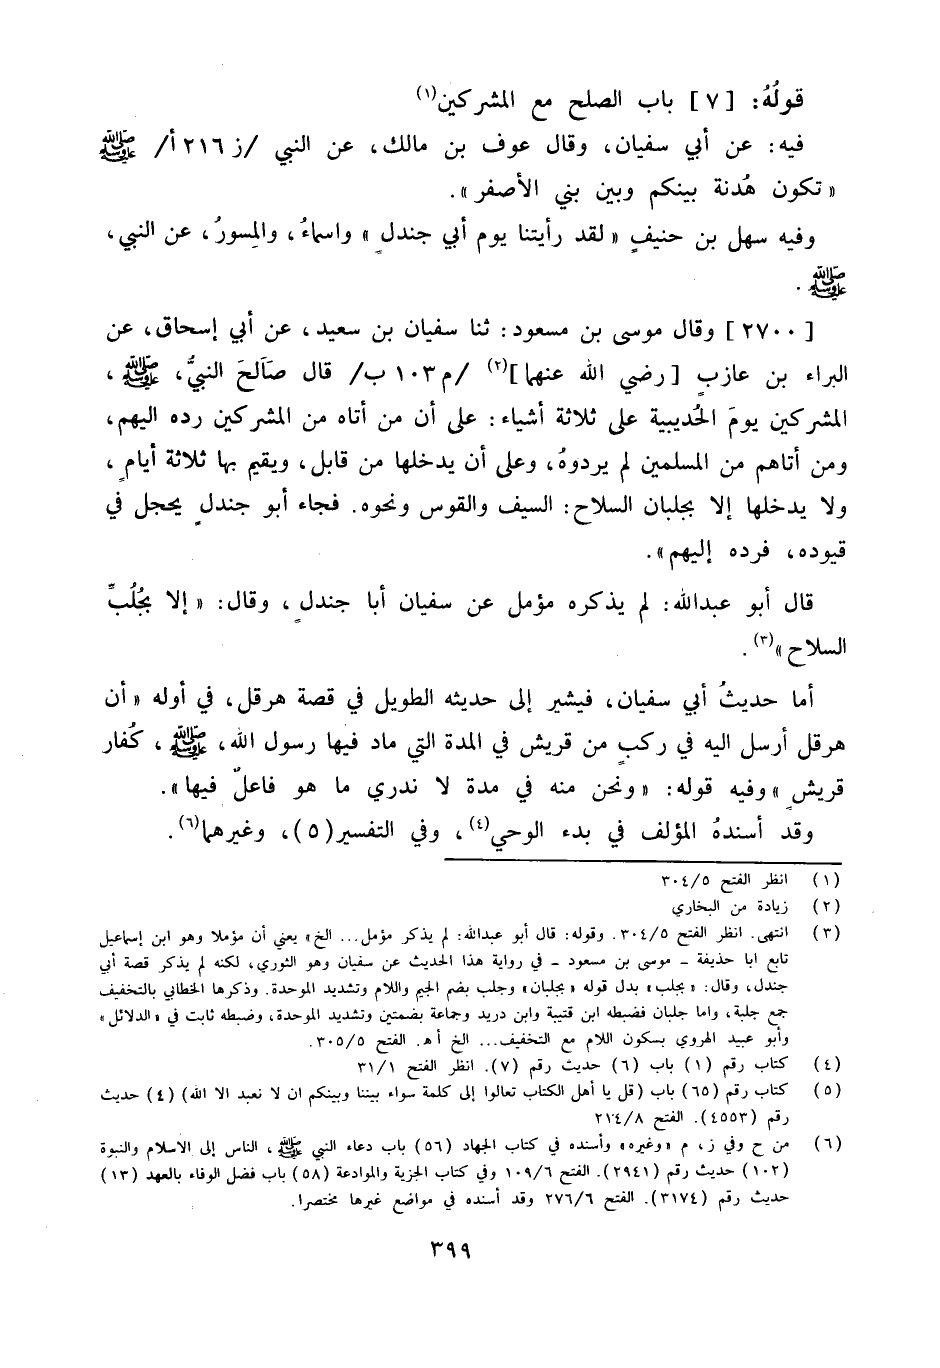 قولُهُ: [٧] باب الصلح مع المشركين(١)
فيه: عن أبي سفيان، وقال عوف بن مالك، عن النبي /ز ٢١٦ أ/ ﷺ
« تكون هُدنة بينكم وبين بني الأصفر ».
وفيه سهل بن حنيفٍ « لقد رأيتنا يوم أبي جندلٍ » واسماءُ، والمِسورُ، عن النبي،
ﷺ .
[ ٢٧٠٠ ] وقال موسى بن مسعود: ثنا سفيان بن سعيد، عن أبي إسحاق، عن
البراء بن عازبٍ [رضي الله عنهما](٢) /م ١٠٣ ب/ قال صَالَحَ النبيُّ، ﷺ ،
المشركين يومَ الحُديبية على ثلاثة أشياء: على أن من أتاه من المشركين رده اليهم،
ومن أتاهم من المسلمين لم يردوهُ، وعلى أن يدخلها من قابل، ويقيم بها ثلاثة أيامٍ،
ولا يدخلها إلا بجلبان السلاح: السيف والقوس ونحوه. فجاء أبو جندلٍ يحجل في
قيوده، فرده إليهم».
قال أبو عبدالله: لم يذكره مؤمل عن سفيان أبا جندلٍ، وقال: « إلا بجُلُبِّ
السلاح »(٣).
أما حديثُ أبي سفيان، فيشير إلى حديثه الطويل في قصة هرقل، في أوله « أن
هرقل أرسل اليه في ركبٍ من قريش في المدة التي ماد فيها رسول الله، ﷺ ، كُفار
قريشٍ » وفيه قوله: « ونحن منه في مدة لا ندري ما هو فاعلٌ فيها».
وقد أسندهُ المؤلف في بدء الوحي(٤)، وفي التفسير(٥)، وغيرهما(٦).
(١) انظر الفتح ٣٠٤/٥
(٢) زيادة من البخاري
(٣) انتهى. انظر الفتح ٣٠٤/٥. وقوله: قال أبو عبدالله: لم يذكر مؤمل... الخ» يعني أن مؤملا وهو ابن إسماعيل
تابع ابا حذيفة - موسى بن مسعود - في رواية هذا الحديث عن سفيان وهو الثوري، لكنه لم يذكر قصة أبي
جندل، وقال: «بجلب» بدل قوله «بجلبان» وجلب بضم الجيم واللام وتشديد الموحدة. وذكرها الخطابي بالتخفيف
جمع جلبة، واما جلبان فضبطه ابن قتيبة وابن دريد وجماعة بضمتين وتشديد الموحدة، وضبطه ثابت في «الدلائل»
وأبو عبيد الهروي بسكون اللام مع التخفيف... الخ أ هـ. الفتح ٣٠٥/٥.
(٤) كتاب رقم (١) باب (٦) حديث رقم (٧). انظر الفتح ٣١/١
(٥) كتاب رقم (٦٥) باب (قل يا أهل الكتاب تعالوا إلى كلمة سواء بيننا وبينكم ان لا نعبد الا الله) (٤) حديث
رقم (٤٥٥٣). الفتح ٢١٤/٨
(٦) من ح وفي ز، م «وغيره» وأسنده في كتاب الجهاد (٥٦) باب دعاء النبي ﷺ، الناس إلى الاسلام والنبوة
(١٠٢) حديث رقم (٢٩٤١). الفتح ١٠٩/٦ وفي كتاب الجزية والموادعة (٥٨) باب فضل الوفاء بالعهد (١٣)
حديث رقم (٣١٧٤). الفتح ٢٧٦/٦ وقد أسنده في مواضع غيرها مختصرا.
٣٩٩